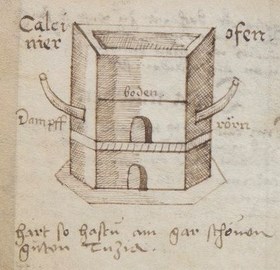 Calci
nier
ofen.
boden.
Dampff
rörn
hart so hastu ein gar schönen
guten Tuzia.